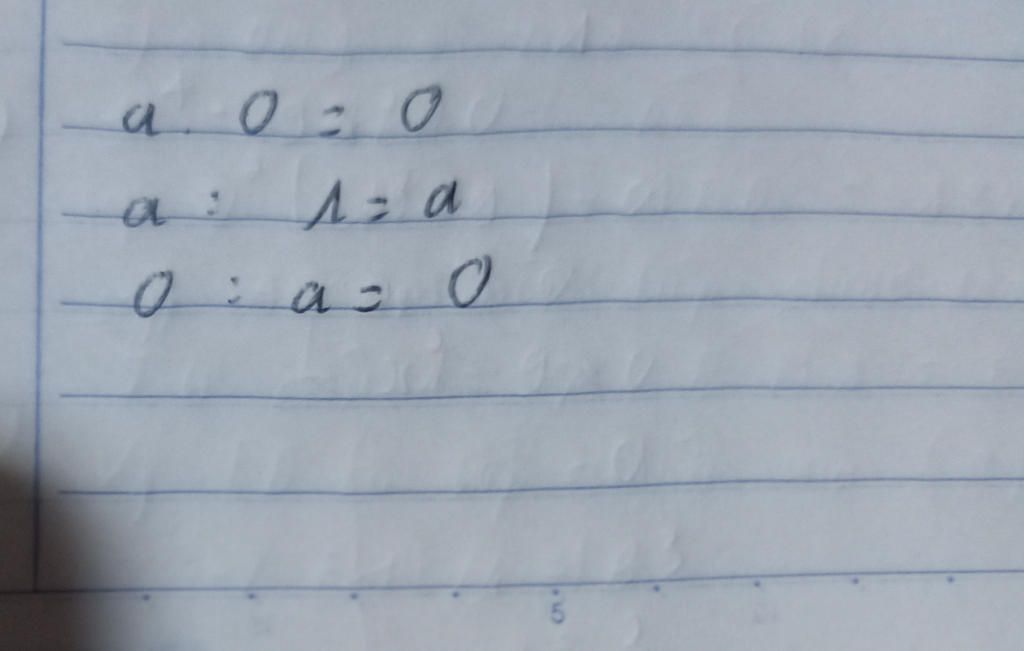 a . 0 = 0
a : 1 = a
0 : a = 0
5